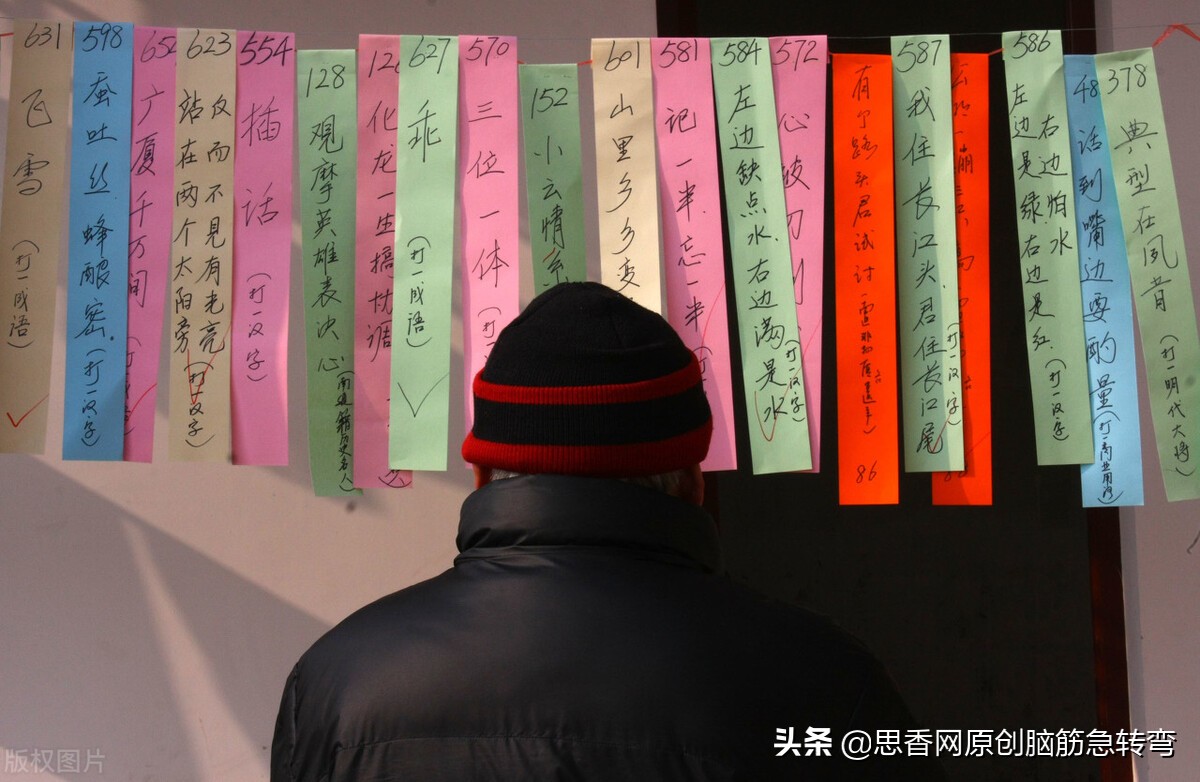 631
飞雪
(打一成语)
598
蚕吐丝 蜂酿密.
(打一汉字)
652
广厦千万间
623
仅而不见有光亮
站在两个太阳旁
(打一汉字)
554
插话
(打一汉字)
128
观摩英雄表决心
化龙一生搞协调
627
乖
(打一成语)
570
三位一体
152
小云情系
601
山里乡乡变
581
记一半.忘一半
584
左边缺点水.右边满是水
(打一汉字)
572
有了路
86
587
我住长江头君住长江尾
(打一汉字)
586
右边怕水
左边是绿.右边是红.
(打一汉字)
48
话到嘴边要酌量
(打一商业用语)
378
典型在夙昔
(打一明代大将)
版权图片
头条 @思香网原创脑筋急转弯